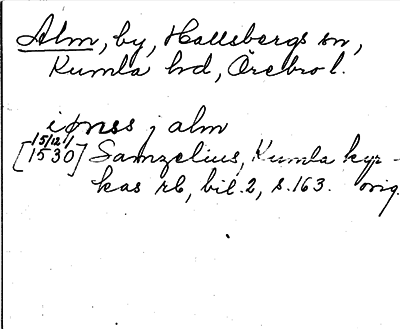 Alm, by, Hallsbergs sn,
Kumla hd, Örebro l.
iønss j alm
15/12
[1530] Samzelius, Kumla kyr-
kas rb, bil. 2, s. 163. orig.